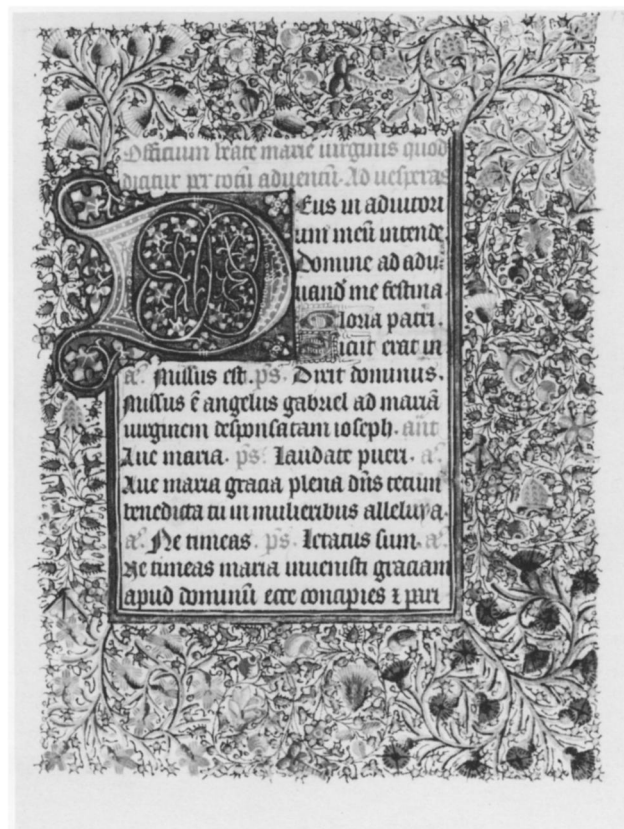 Officium beate marie uirginis quod
dicitur per totū aduentū. Ad uesperas
Deus in adiutori
um meū intende.
Domine ad adiu
uand me festina.
Gloria patri.
Sicut erat in
a. Missus est. ps. Dixit dominus.
Missus ē angelus gabriel ad mariā
uirginem desponsatam ioseph. ant
Aue maria. ps. Laudate pueri. a.
Aue maria gracia plena dn̄s tecum
benedicta tu in mulieribus alleluya.
a. Ne timeas. ps. Letatus sum. a.
Ne timeas maria inuenisti graciam
apud dominū ecce concipies ⁊ pari